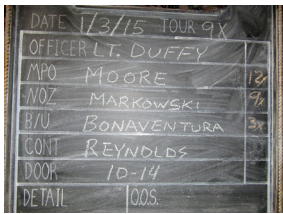 DATE 1/3/15 TOUR 9X
OFFICER LT. DUFFY
MPO MOORE 12x
NOZ MARKOWSKI 9x
B/U BONAVENTURA 3x
CONT REYNOLDS
DOOR 10-14
DETAIL O.O.S.